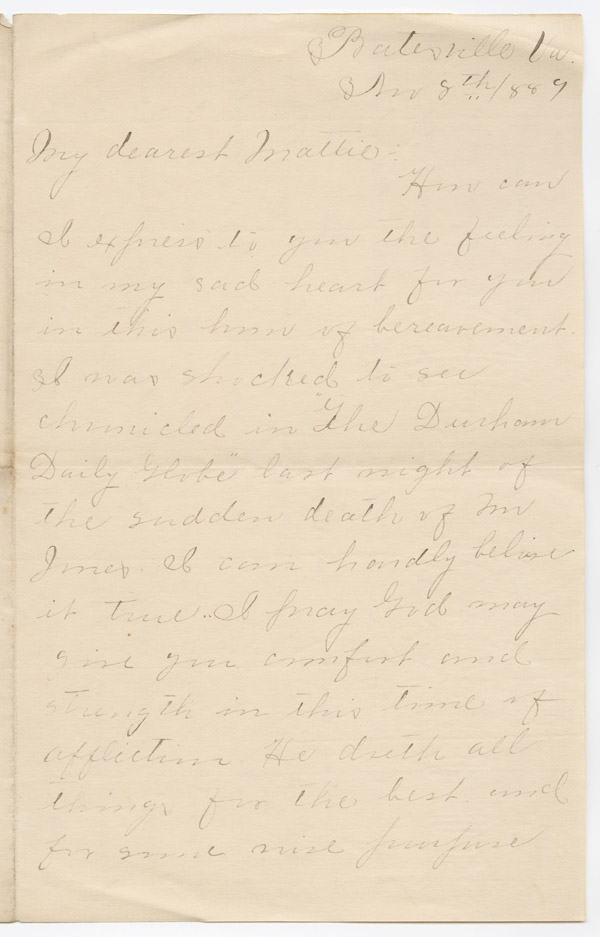 Batesville Va.
Nov 8th 1889
My dearest Mattie:
How can
I express to you the feeling
in my sad heart for you
in this hour of bereavement.
I was shocked to see
chronicled in "The Durham
Daily Globe" last night of
the sudden death of Mr
Jones. I can hardly belive
it true. I pray God may
give you comfort and
strength in this time of
affliction. He doeth all
things for the best and
for some wise purpose